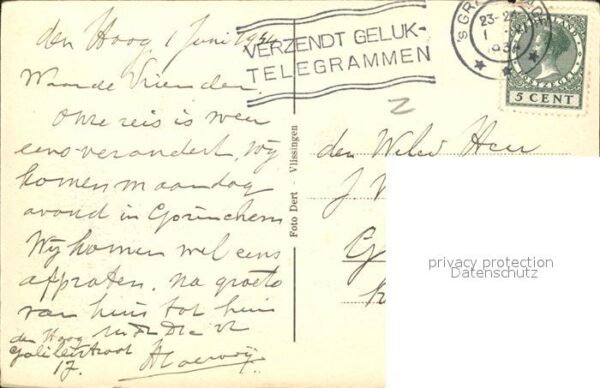 den Haag 1 Juni 1934
Waarde Vrienden.
Onze reis is weer
eens veranderd. Wij
komen maandag
avond in Gorinchem
Wij komen wel eens
appraten. na groete
van huis tot huis
den Haag
Galileistraat
17.
VERZENDT GELUK-
TELEGRAMMEN
'SGRAVENHAGE
23-24
1
1934
NEDERLAND
5 CENT
2
Foto Dert Vlissingen
den Weled Heer
J
G
privacy protection
Datenschutz